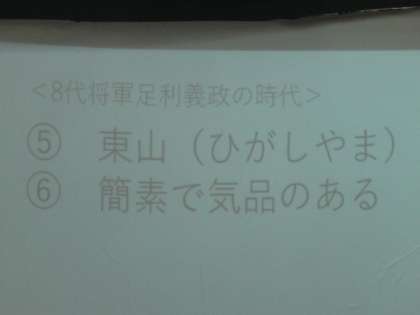 ＜8代将軍足利義政の時代＞
⑤ 東山（ひがしやま）
⑥ 簡素で気品のある